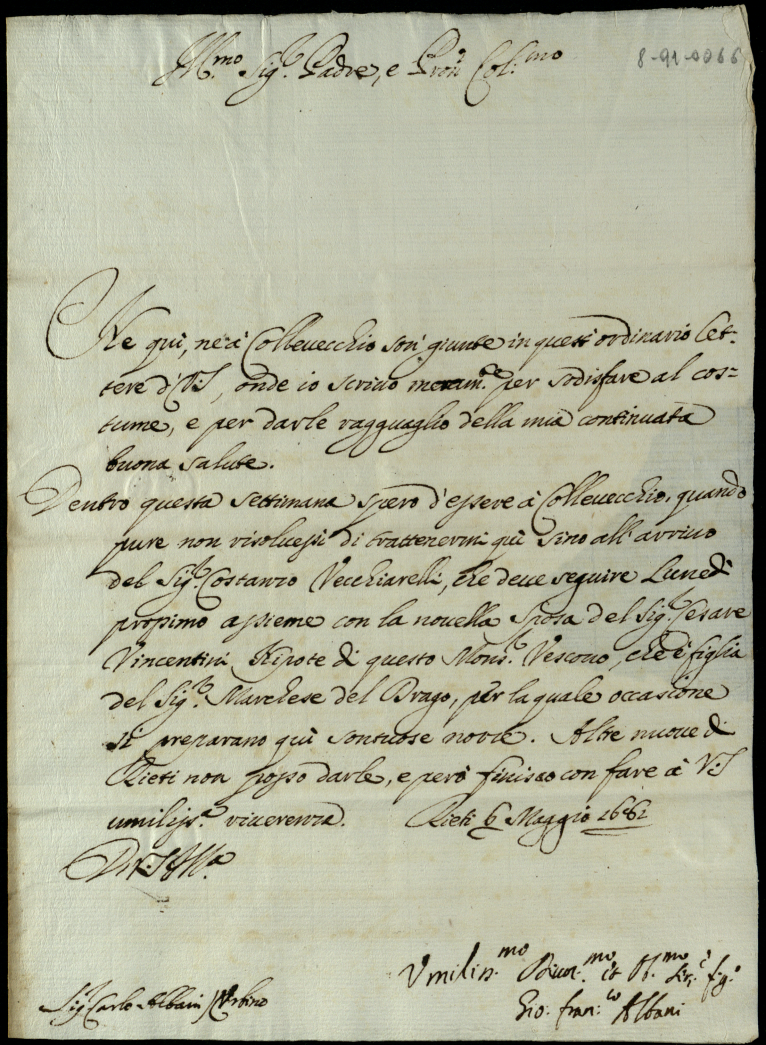 Ill.mo Sig.r Padre, e Pron Col:mo
8-91-0066
Ne qui, ne à Collevecchio son giunte in quest'ordinario let-
tere di V.S, onde io scrivo meram.te per sodisfare al cos=
tume, e per darle ragguaglio della mia continuata
buona salute.
Dentro questa settimana spero d'essere à Collevecchio, quando
pure non risoluessi di trattenermi quì sino all'arriuo
del Sig.r Costanzo Vecchiarelli, che deue seguire Lunedì
prossimo assieme con la nouella sposa del Sig.r Cesare
Vincentini Nipote di questo Mons.r Vescouo, che è figlia
del Sig.r Marchese del Drago, per la quale occasione
si preparano quì sontuose nozze. Altre nuoue di
Rieti non posso darle, e però finisco con fare à V.S
umiliss.a riuerenza. Rieti 6 Maggio 1681
Di V.S Ill.a
Umilis.mo Diuot.mo et Ob.mo Ser.e fig.o
Gio: Fran:co Albani
Sig Carlo Albani Urbino